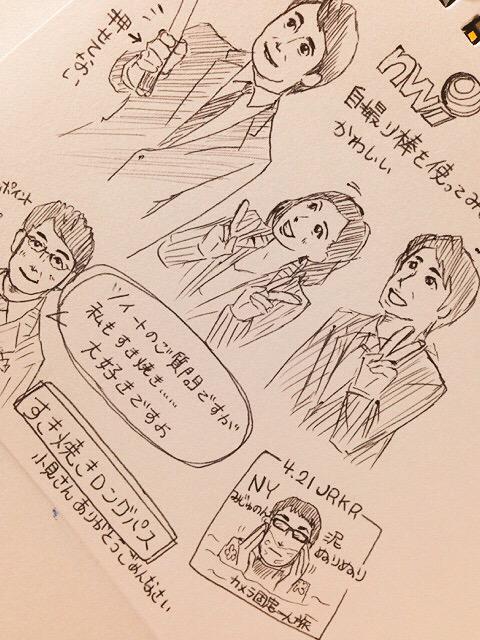 押せないよ!
nwi
自撮り棒を使ってみ
かわいい
ポイント
ツイートのご質問ですが
私もすき焼き……
大好きですよ
すき焼きロングパス
小見さんありがとうごめんなさい
4.21 URKR
NY
みじゅのん
泥
ぬりぬり
～カメラ固定一人旅～